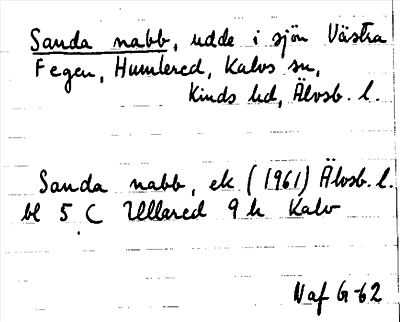 Sanda nabb, udde i sjön Västra
Fegen, Humlered, Kalvs sn,
Kinds hd, Älvsb. l.
Sanda nabb, ek (1961) Älvsb. l.
bl 5 C Ullared 9 h Kalv
Naf G-62